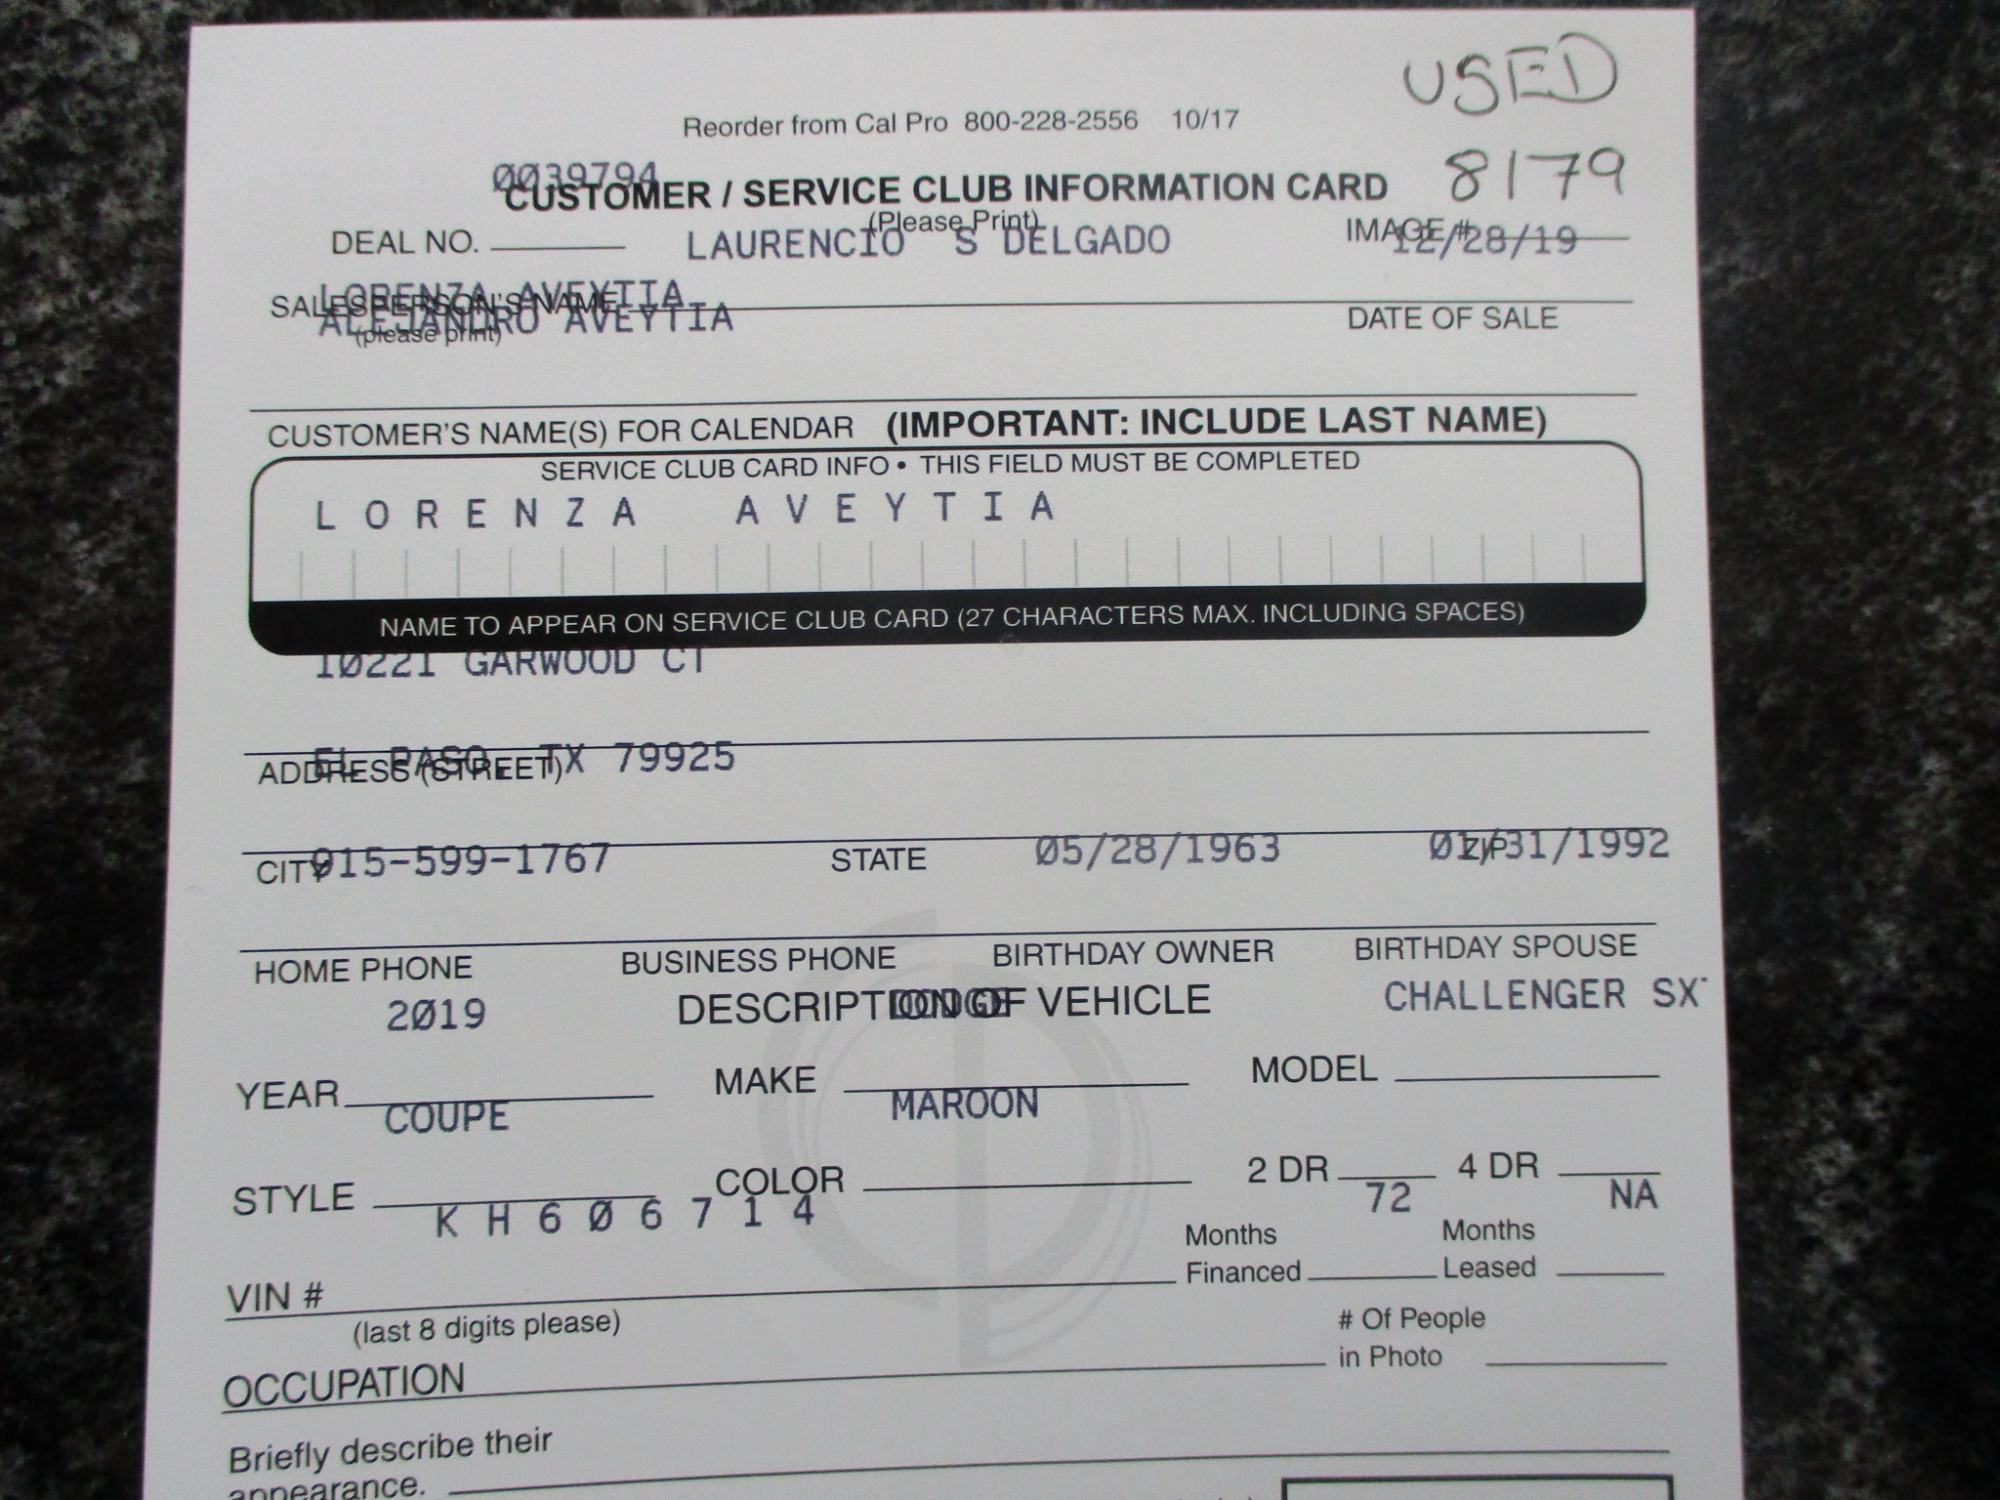 USED
Reorder from Cal Pro 800-228-2556 10/17
8179
0039794
CUSTOMER / SERVICE CLUB INFORMATION CARD
(Please Print)
DEAL NO. LAURENCIO S DELGADO IMAGE # 12/28/19
LORENZA AVEYTIA
SALESPERSON'S NAME
ALEJANDRO AVEYTIA DATE OF SALE
(please print)
CUSTOMER'S NAME(S) FOR CALENDAR (IMPORTANT: INCLUDE LAST NAME)
SERVICE CLUB CARD INFO • THIS FIELD MUST BE COMPLETED
LORENZA AVEYTIA
NAME TO APPEAR ON SERVICE CLUB CARD (27 CHARACTERS MAX. INCLUDING SPACES)
10221 GARWOOD CT
EL PASO, TX 79925
ADDRESS (STREET)
915-599-1767 05/28/1963 01/31/1992
CITY STATE ZIP
HOME PHONE BUSINESS PHONE BIRTHDAY OWNER BIRTHDAY SPOUSE
2019 DODGE CHALLENGER
DESCRIPTION OF VEHICLE
YEAR MAKE MODEL
COUPE MAROON
STYLE COLOR 2 DR 4 DR
KH606714 72 NA
Months Financed Months Leased
VIN #
(last 8 digits please)
# Of People in Photo
OCCUPATION
Briefly describe their
appearance.